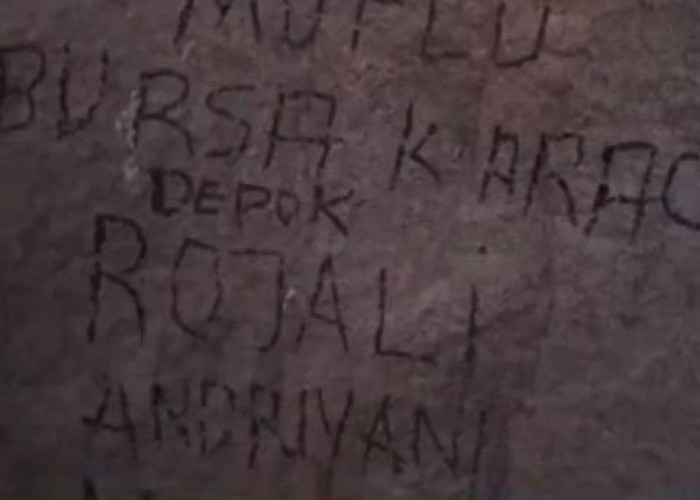 BURSA KARAC
DEPOK
ROJALi
ANDRIYANI